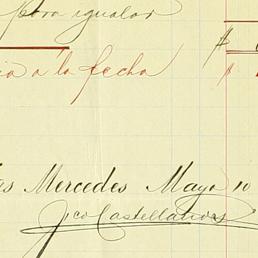 para igualar $
ia a la fecha $
as Mercedes Mayo 10
Jco Castellanos